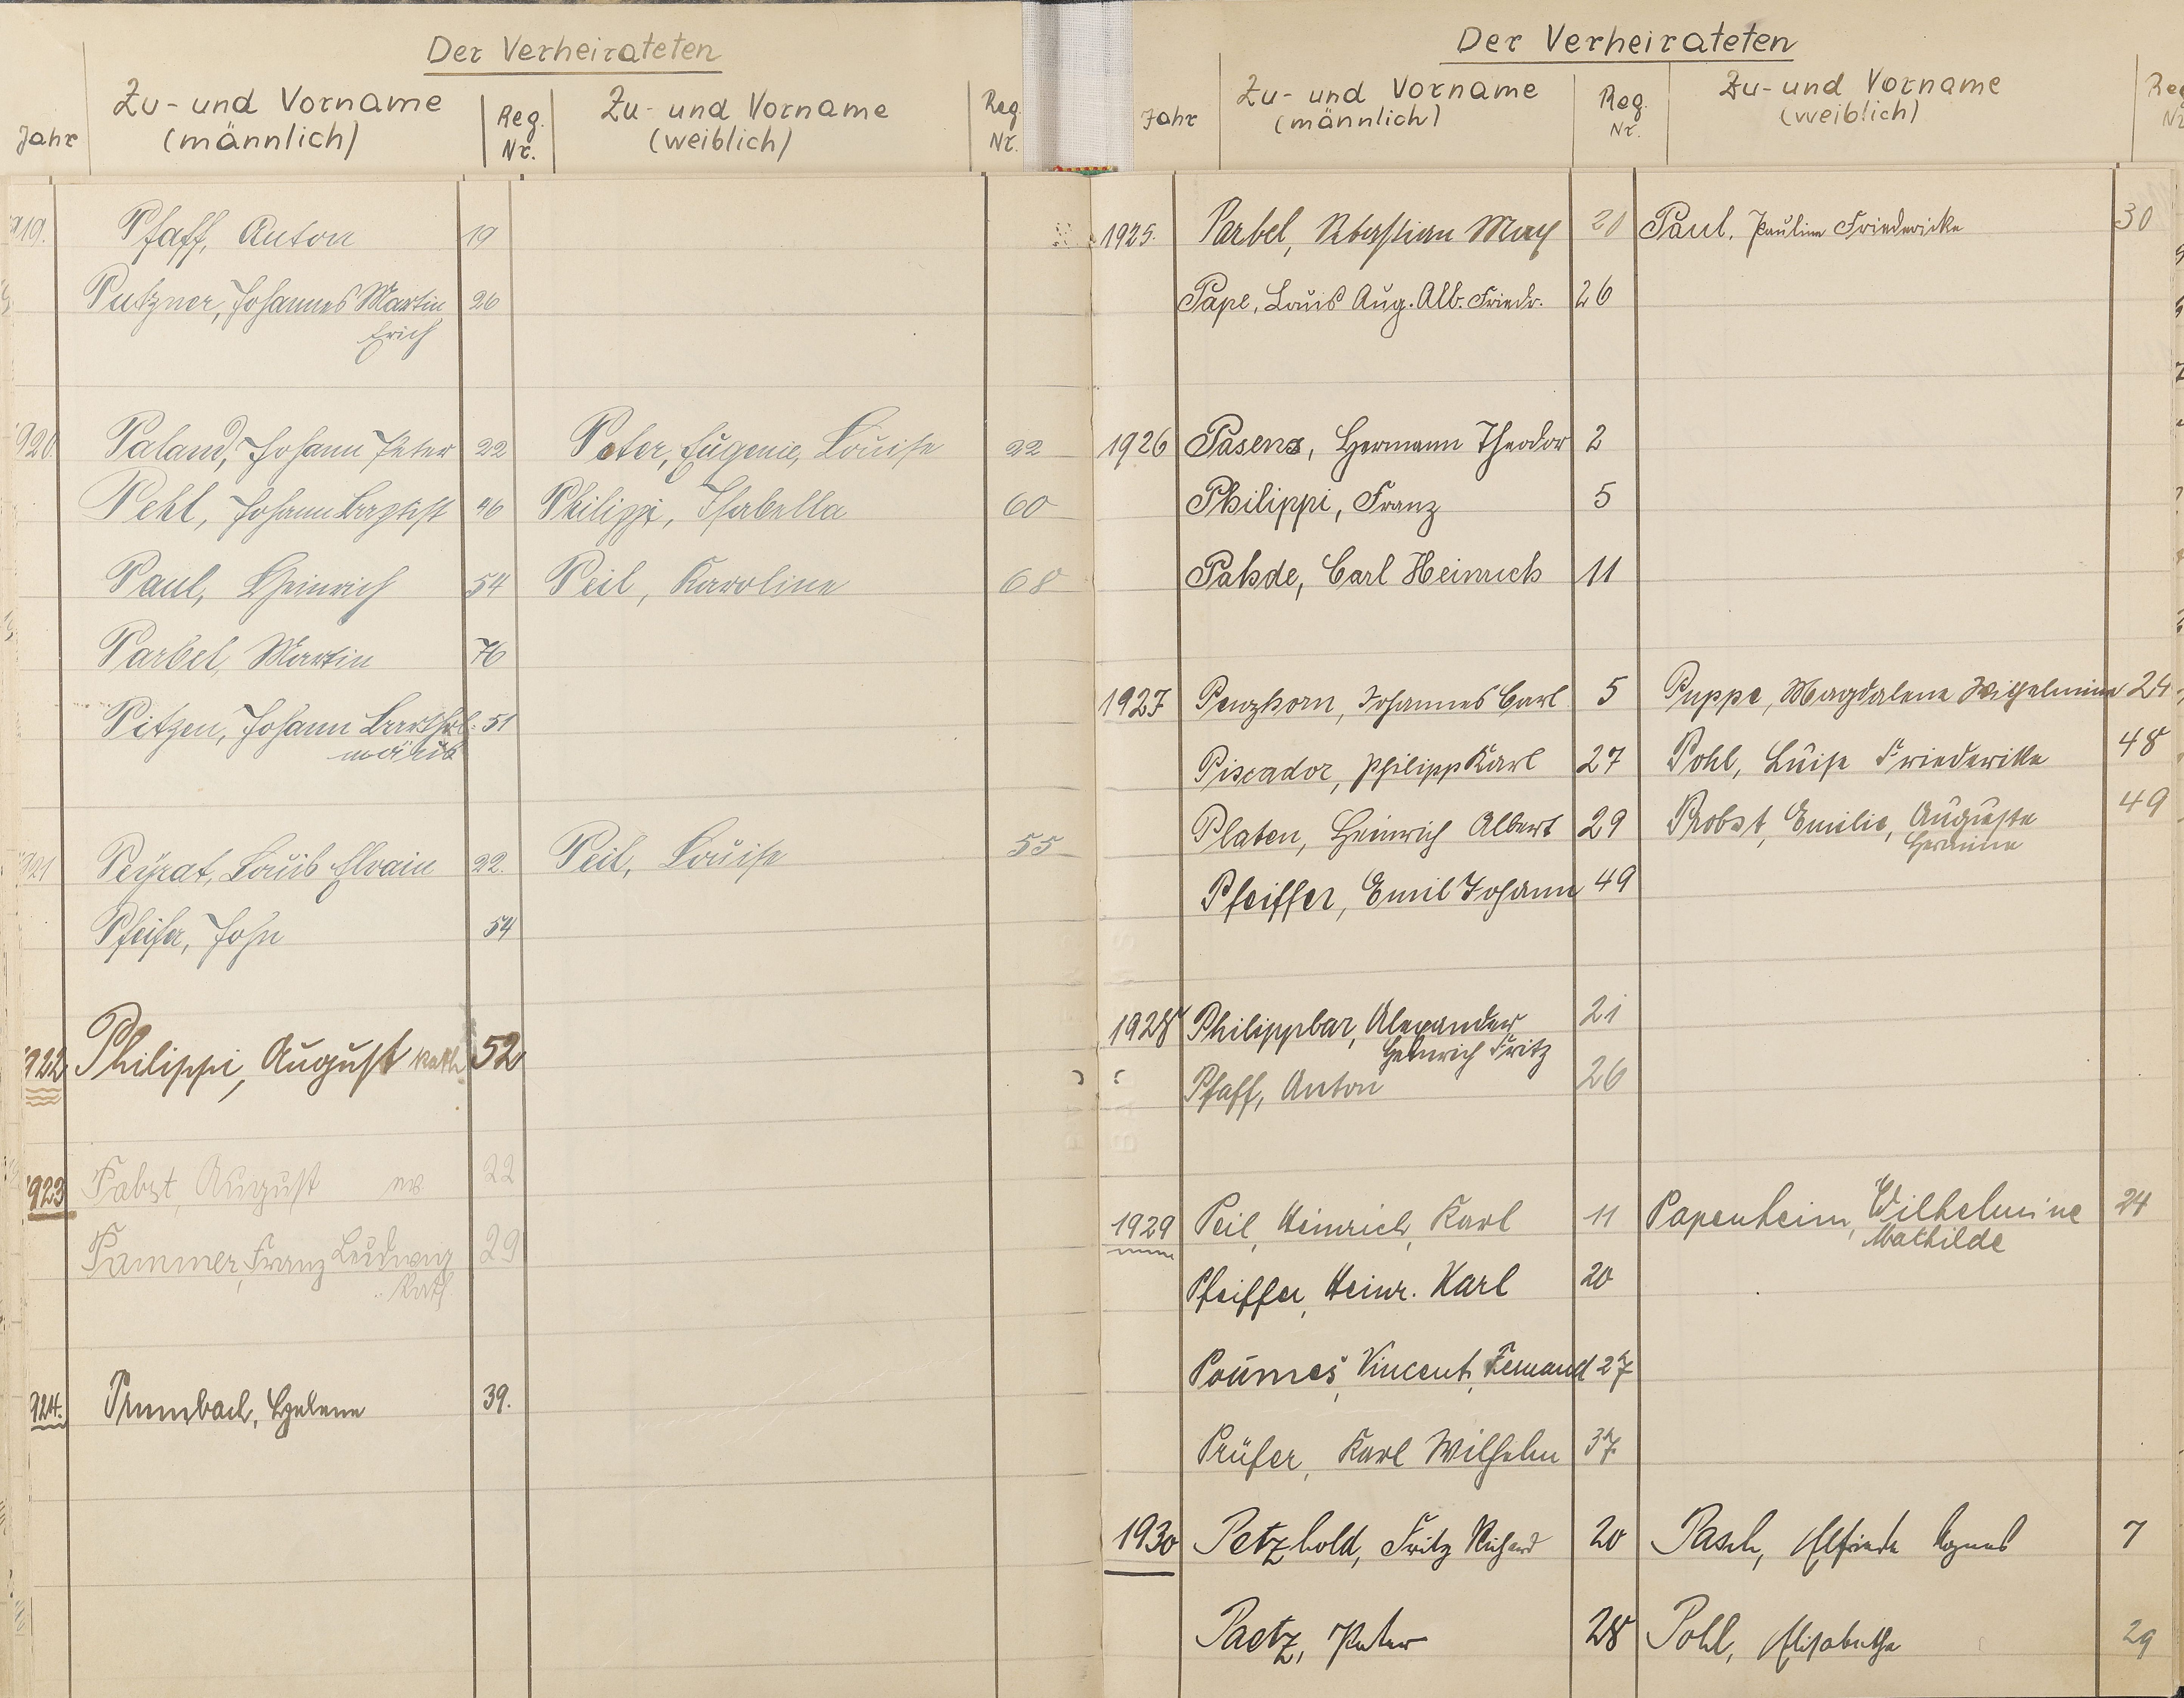 Der Verheirateten
Jahr Zu- und Vorname (männlich) Reg. Nr. Zu- und Vorname (weiblich) Reg. Nr.
919. Pfaff, Anton 19
Putzner, Johannes Martin 26
Erich
1920 Paland, Johann Peter 22 Peter, Eugenie, Louise 22
Pehl, Johann Baptist 46 Philippi, Isabella 60
Paul, Heinrich 54 Peil, Karoline 68
Parbel, Martin 76
Pitzen, Johann Barthol- 51
mäus
1921 Peyrat, Louis 22. Peil, Louise 55
Pfeifer, John 54
1922 Philippi, August kath. 52
1923 Pabst, August ev. 22
Pammer, Franz Ludwig 29
Kath.
924. Helene 39.
Der Verheirateten
Jahr Zu- und Vorname (männlich) Reg. Nr. Zu- und Vorname (weiblich) Reg Nr
1925. Parbel, Sebastian Max 20 Paul, Pauline Friedericke 30
Pape, Louis Aug. Alb. Friedr. 26
1926 Pasens, Hermann Theodor 2
Philippi, Franz 5
Pahde, Carl Heinrich 11
1927 Penzhorn, Johannes Carl 5 Puppe, Magdalene Wilhelmine 24
Piscador, Philipp Karl 27 Pohl, Luise Friederike 48
Platen, Heinrich Albert 29 Probst, Emilie, Auguste 49
Hermine
Pfeiffer, Emil Johann 49
1928 Philippbar, Alexander 21
Heinrich Fritz
Pfaff, Anton 26
1929 Peil, Heinrich, Karl 11 Papenheim, Wilhelmine 24
Mathilde
Pfeiffer, Heinr. Karl 20
Poumes, Vincent, Fernand 27
Prüfer, Karl Wilhelm 37
1930 Petzhold, Fritz Richard 20 Pasch, Elfriede Agnes 7
Paetz, Peter 28 Pohl, Elisabetha 29